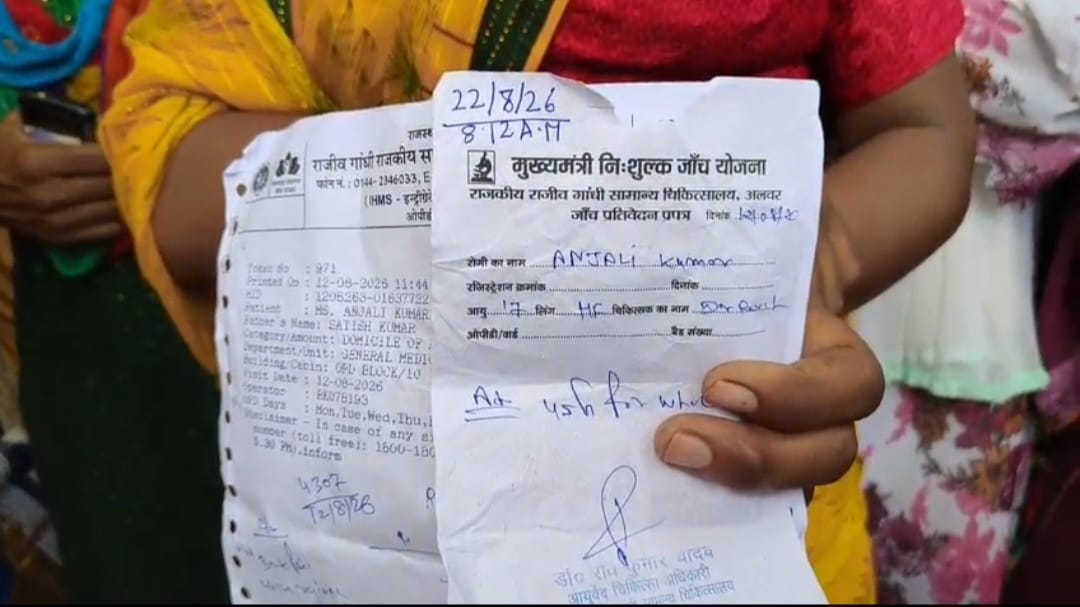 राजस्
राजीव गांधी राजकीय स
फोन नं.: 0144- 2346033, E
(IHMS - इन्टीग्रे
ओपीडी
Token No : 971
Printed On : 12-08-2026 11:44
: 1208263-01637722
Patient : MS. ANJALI KUMAR
Father's Name: SATISH KUMAR
Category/Amount: DOMICILE OF
Department/Unit: GENERAL MEDIC
Building/Cabin: OPD BLOCK/10
Visit Date : 12-08-2026
Operator : RE078193
OPD Days : Mon,Tue,Wed,Thu,
Disclaimer - In case of any
number (toll free): 1800-180
5.30 PM).inform
4307
12/8/26
22/8/26
8.12 A.M
मुख्यमंत्री निःशुल्क जाँच योजना
राजकीय राजीव गांधी सामान्य चिकित्सालय, अलवर
जाँच प्रतिवेदन प्रपत्र दिनांक
रोगी का नाम ANJALI Kumar
रजिस्ट्रेशन क्रमांक दिनांक
आयु 17 लिंग चिकित्सक का नाम
ओपीडी/वार्ड बैड संख्या
for
डॉ० राम कुमार यादव
आयुर्वेद चिकित्सा अधिकारी
सामान्य चिकित्सालय